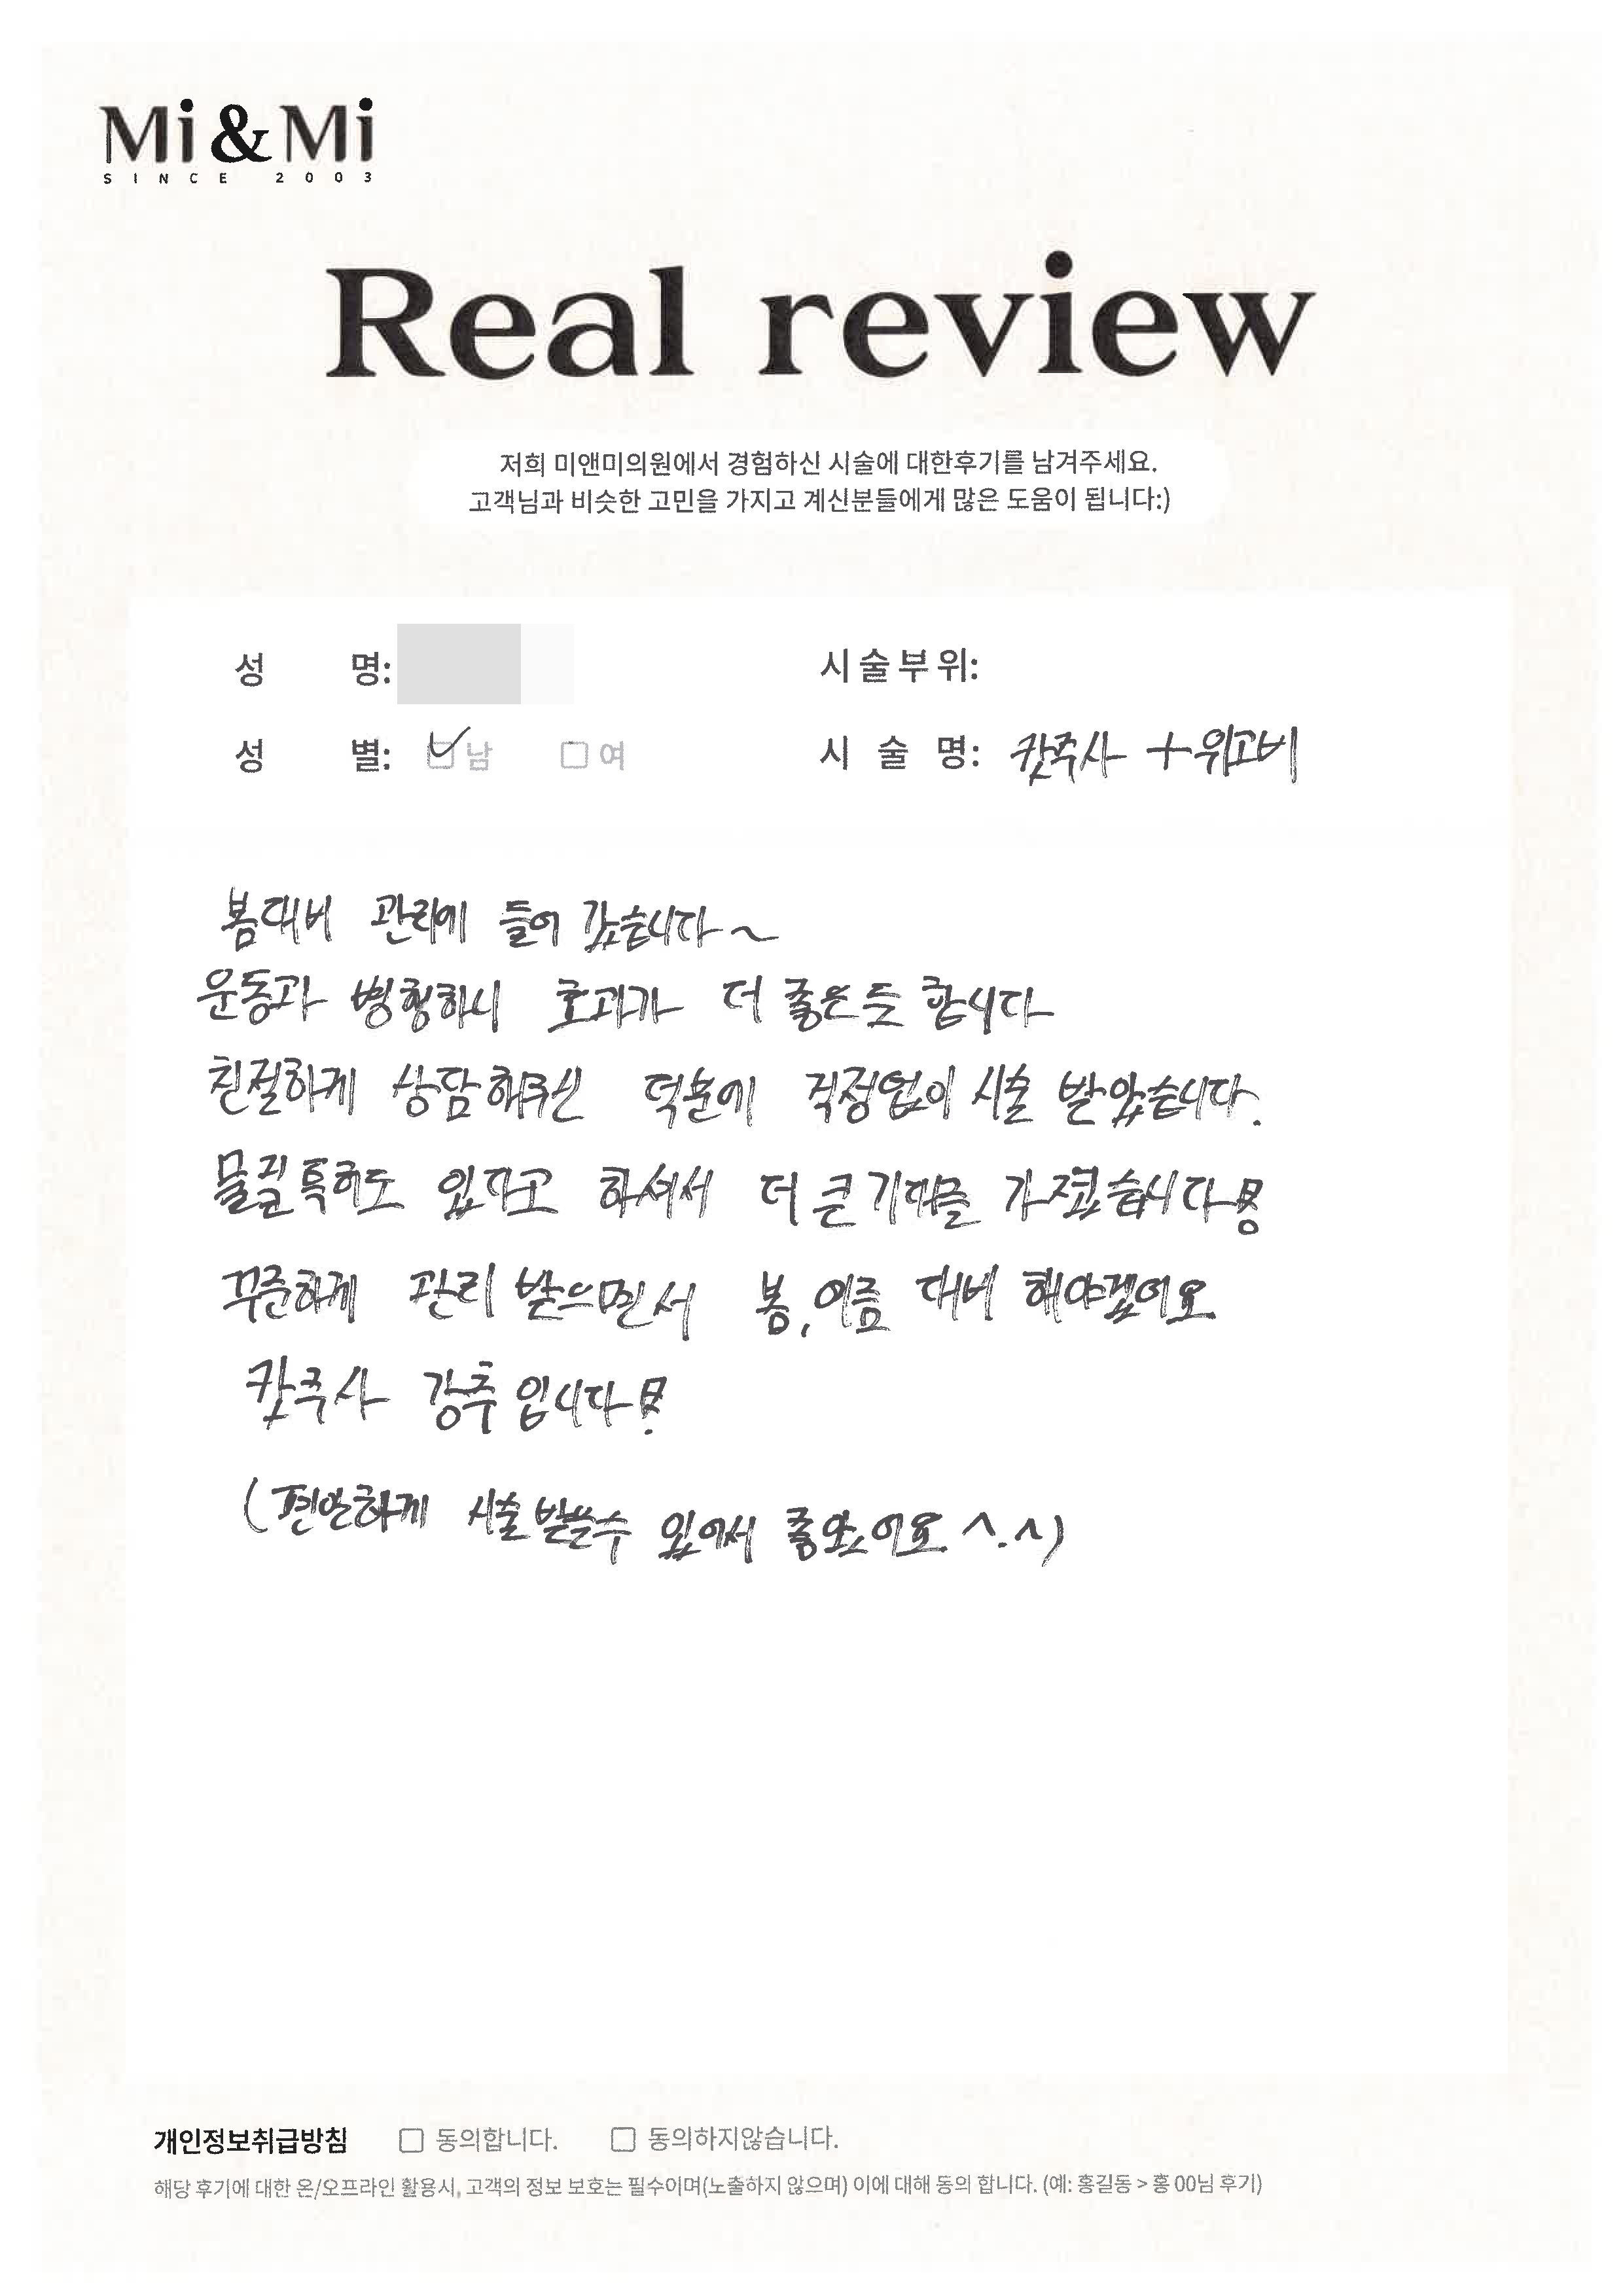 Mi&Mi
SINCE 2003
Real review
저희 미앤미의원에서 경험하신 시술에 대한후기를 남겨주세요.
고객님과 비슷한 고민을 가지고 계신분들에게 많은 도움이 됩니다:)
성 명:
시술부위:
성 별: 남 여
시 술 명: 캇주사 + 위고비
봄대비 관리에 들어 갔습니다~
운동과 병행하니 효과가 더 좋은듯 합니다
친절하게 상담해주신 덕분에 걱정없이 시술 받았습니다.
물질특허도 있다고 하셔서 더 큰 기대를 가졌습니다!
꾸준하게 관리 받으면서 봄,여름 대비 해야겠어요
캇주사 강추 입니다!
(편안하게 시술받을수 있어서 좋았어요 ^.^)
개인정보취급방침 동의합니다. 동의하지않습니다.
해당 후기에 대한 온/오프라인 활용시, 고객의 정보 보호는 필수이며(노출하지 않으며) 이에 대해 동의 합니다. (예: 홍길동 > 홍 00님 후기)